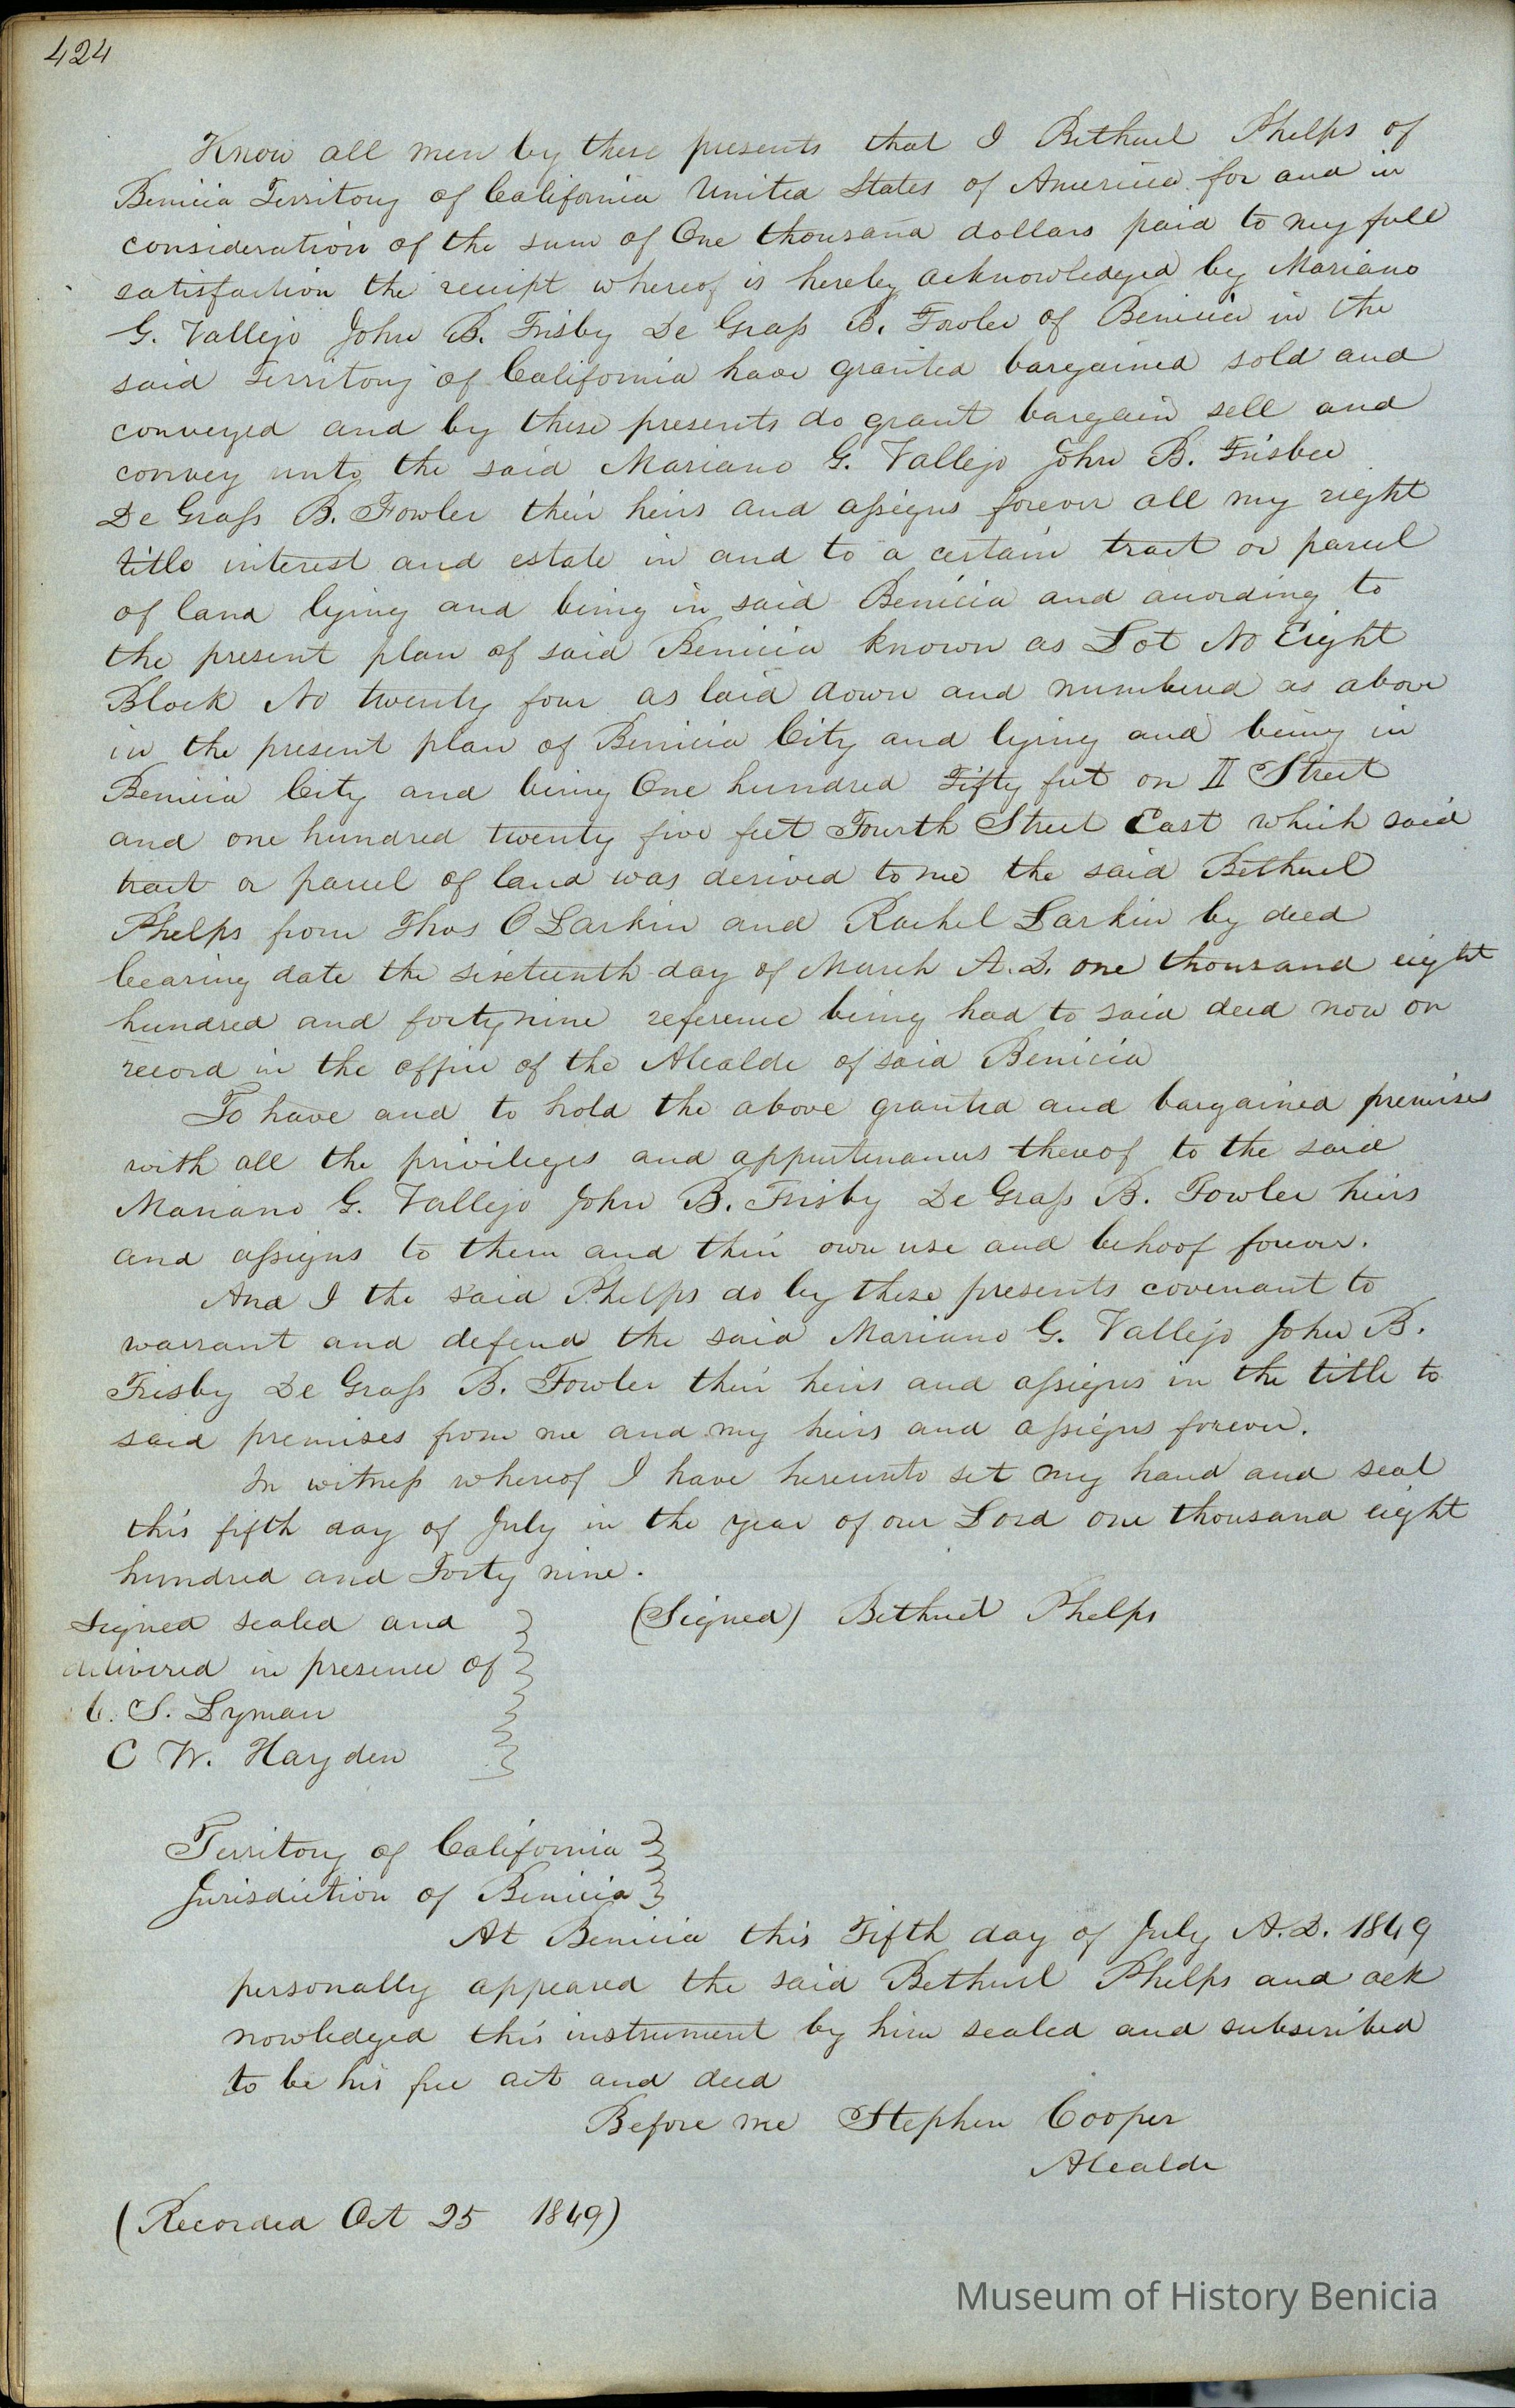 424
Know all men by these presents that I Bethuel Phelps of
Benicia Territory of California United States of America for and in
consideration of the sum of One thousand dollars paid to my full
satisfaction the receipt whereof is hereby acknowledged by Mariano
G. Vallejo John B. Frisby De Grass B. Fowler of Benicia in the
said Territory of California have granted bargained sold and
conveyed and by these presents do grant bargain sell and
convey unto the said Mariano G. Vallejo John B. Frisbee
De Grass B. Fowler their heirs and assigns forever all my right
title interest and estate in and to a certain tract or parcel
of land lying and being in said Benicia and according to
the present plan of said Benicia known as Lot No Eight
Block No twenty four as laid down and numbered as above
in the present plan of Benicia City and lying and being in
Benicia City and being One hundred Fifty feet on II Street
and one hundred twenty five feet Fourth Street East which said
tract or parcel of land was derived to me the said Bethuel
Phelps from Thos O Larkin and Rachel Larkin by deed
bearing date the sixteenth day of March A.D. one thousand eight
hundred and forty nine reference being had to said deed now on
record in the office of the Alcalde of said Benicia
To have and to hold the above granted and bargained premises
with all the privileges and appurtenances thereof to the said
Mariano G. Vallejo John B. Frisby De Grass B. Fowler heirs
and assigns to them and their own use and behoof forever.
And I the said Phelps do by these presents covenant to
warrant and defend the said Mariano G. Vallejo John B.
Frisby De Grass B. Fowler their heirs and assigns in the title to
said premises from me and my heirs and assigns forever.
In witness whereof I have hereunto set my hand and seal
this fifth day of July in the year of our Lord one thousand eight
hundred and Forty nine.
Signed sealed and (Signed) Bethuel Phelps
delivered in presence of
C. S. Lyman
C W. Hayden
Territory of California
Jurisdiction of Benicia
At Benicia this Fifth day of July A.D. 1849
personally appeared the said Bethuel Phelps and ack
nowledged this instrument by him sealed and subscribed
to be his free act and deed
Before me Stephen Cooper
Alcalde
(Recorded Oct 25 1849)
Museum of History Benicia